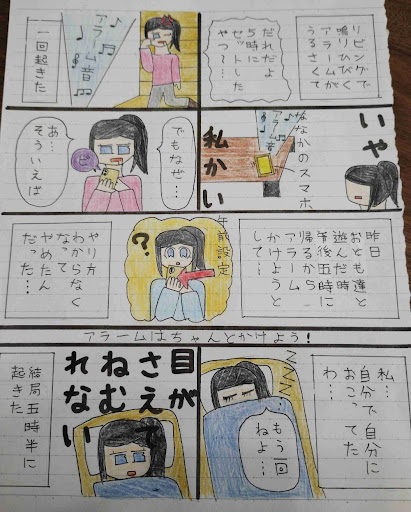 リビングで
鳴りひびく
アラームが
うるさくて
だれだよ
5時に
セットした
やつ〜
アラーム音
一回起きた
いや
私かい
ななかのスマホ
アラーム音
でもなぜ…
ピッ
あ…
そういえば
昨日
おとも達と
遊んだ時
午後五時に
帰るから
アラーム
かけようと
して…
午前設定
?
やり方
わからなく
なって
やめたん
だった…
アラームはちゃんとかけよう!
私…
自分で自分に
おこってた
わ…
ZZZ
もう一回
ねよ…
目が
さえて
ねむ
れない
結局五時半に
起きた